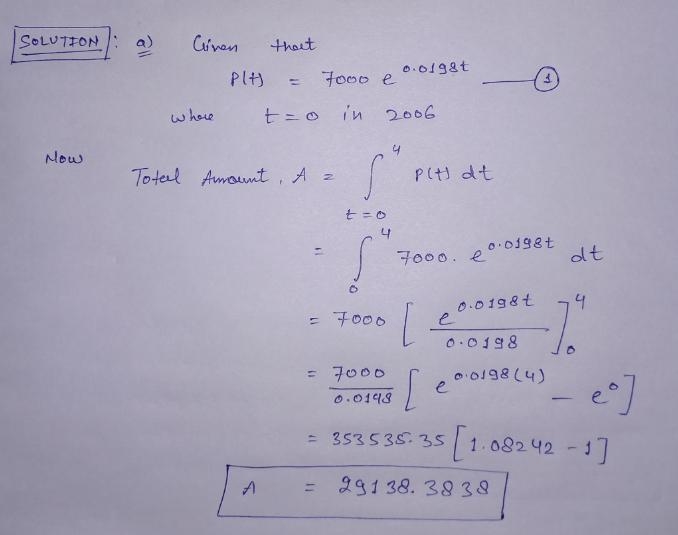 SOLUTION : a) Given that
P(t) = 7000 e^0.0198t — ①
where t = 0 in 2006
Now
Total Amount, A = ∫_{t=0}^{4} P(t) dt
= ∫_0^4 7000. e^0.0198t dt
= 7000 [ e^0.0198t / 0.0198 ]_0^4
= 7000 / 0.0198 [ e^0.0198(4) - e^0 ]
= 353535.35 [ 1.08242 - 1 ]
A = 29138.3838